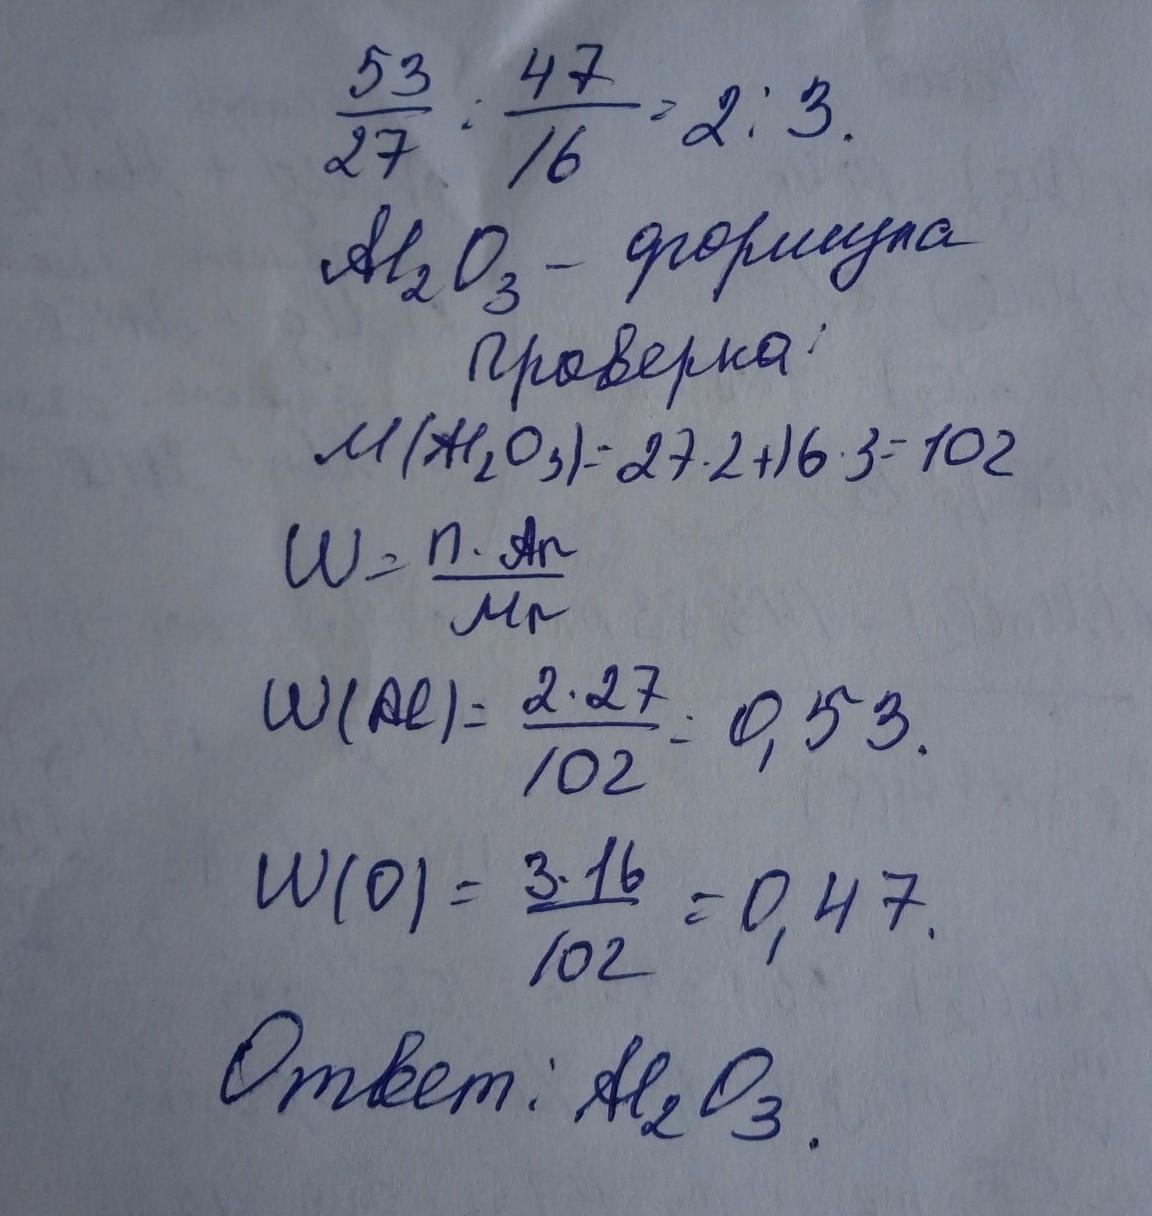 53/27 : 47/16 = 2 : 3.
Al₂O₃ - формула
проверка:
M(Al₂O₃) = 27·2+16·3 = 102
W = n·Ar/Mr
W(Al) = 2·27/102 = 0,53.
W(O) = 3·16/102 = 0,47.
Ответ: Al₂O₃.